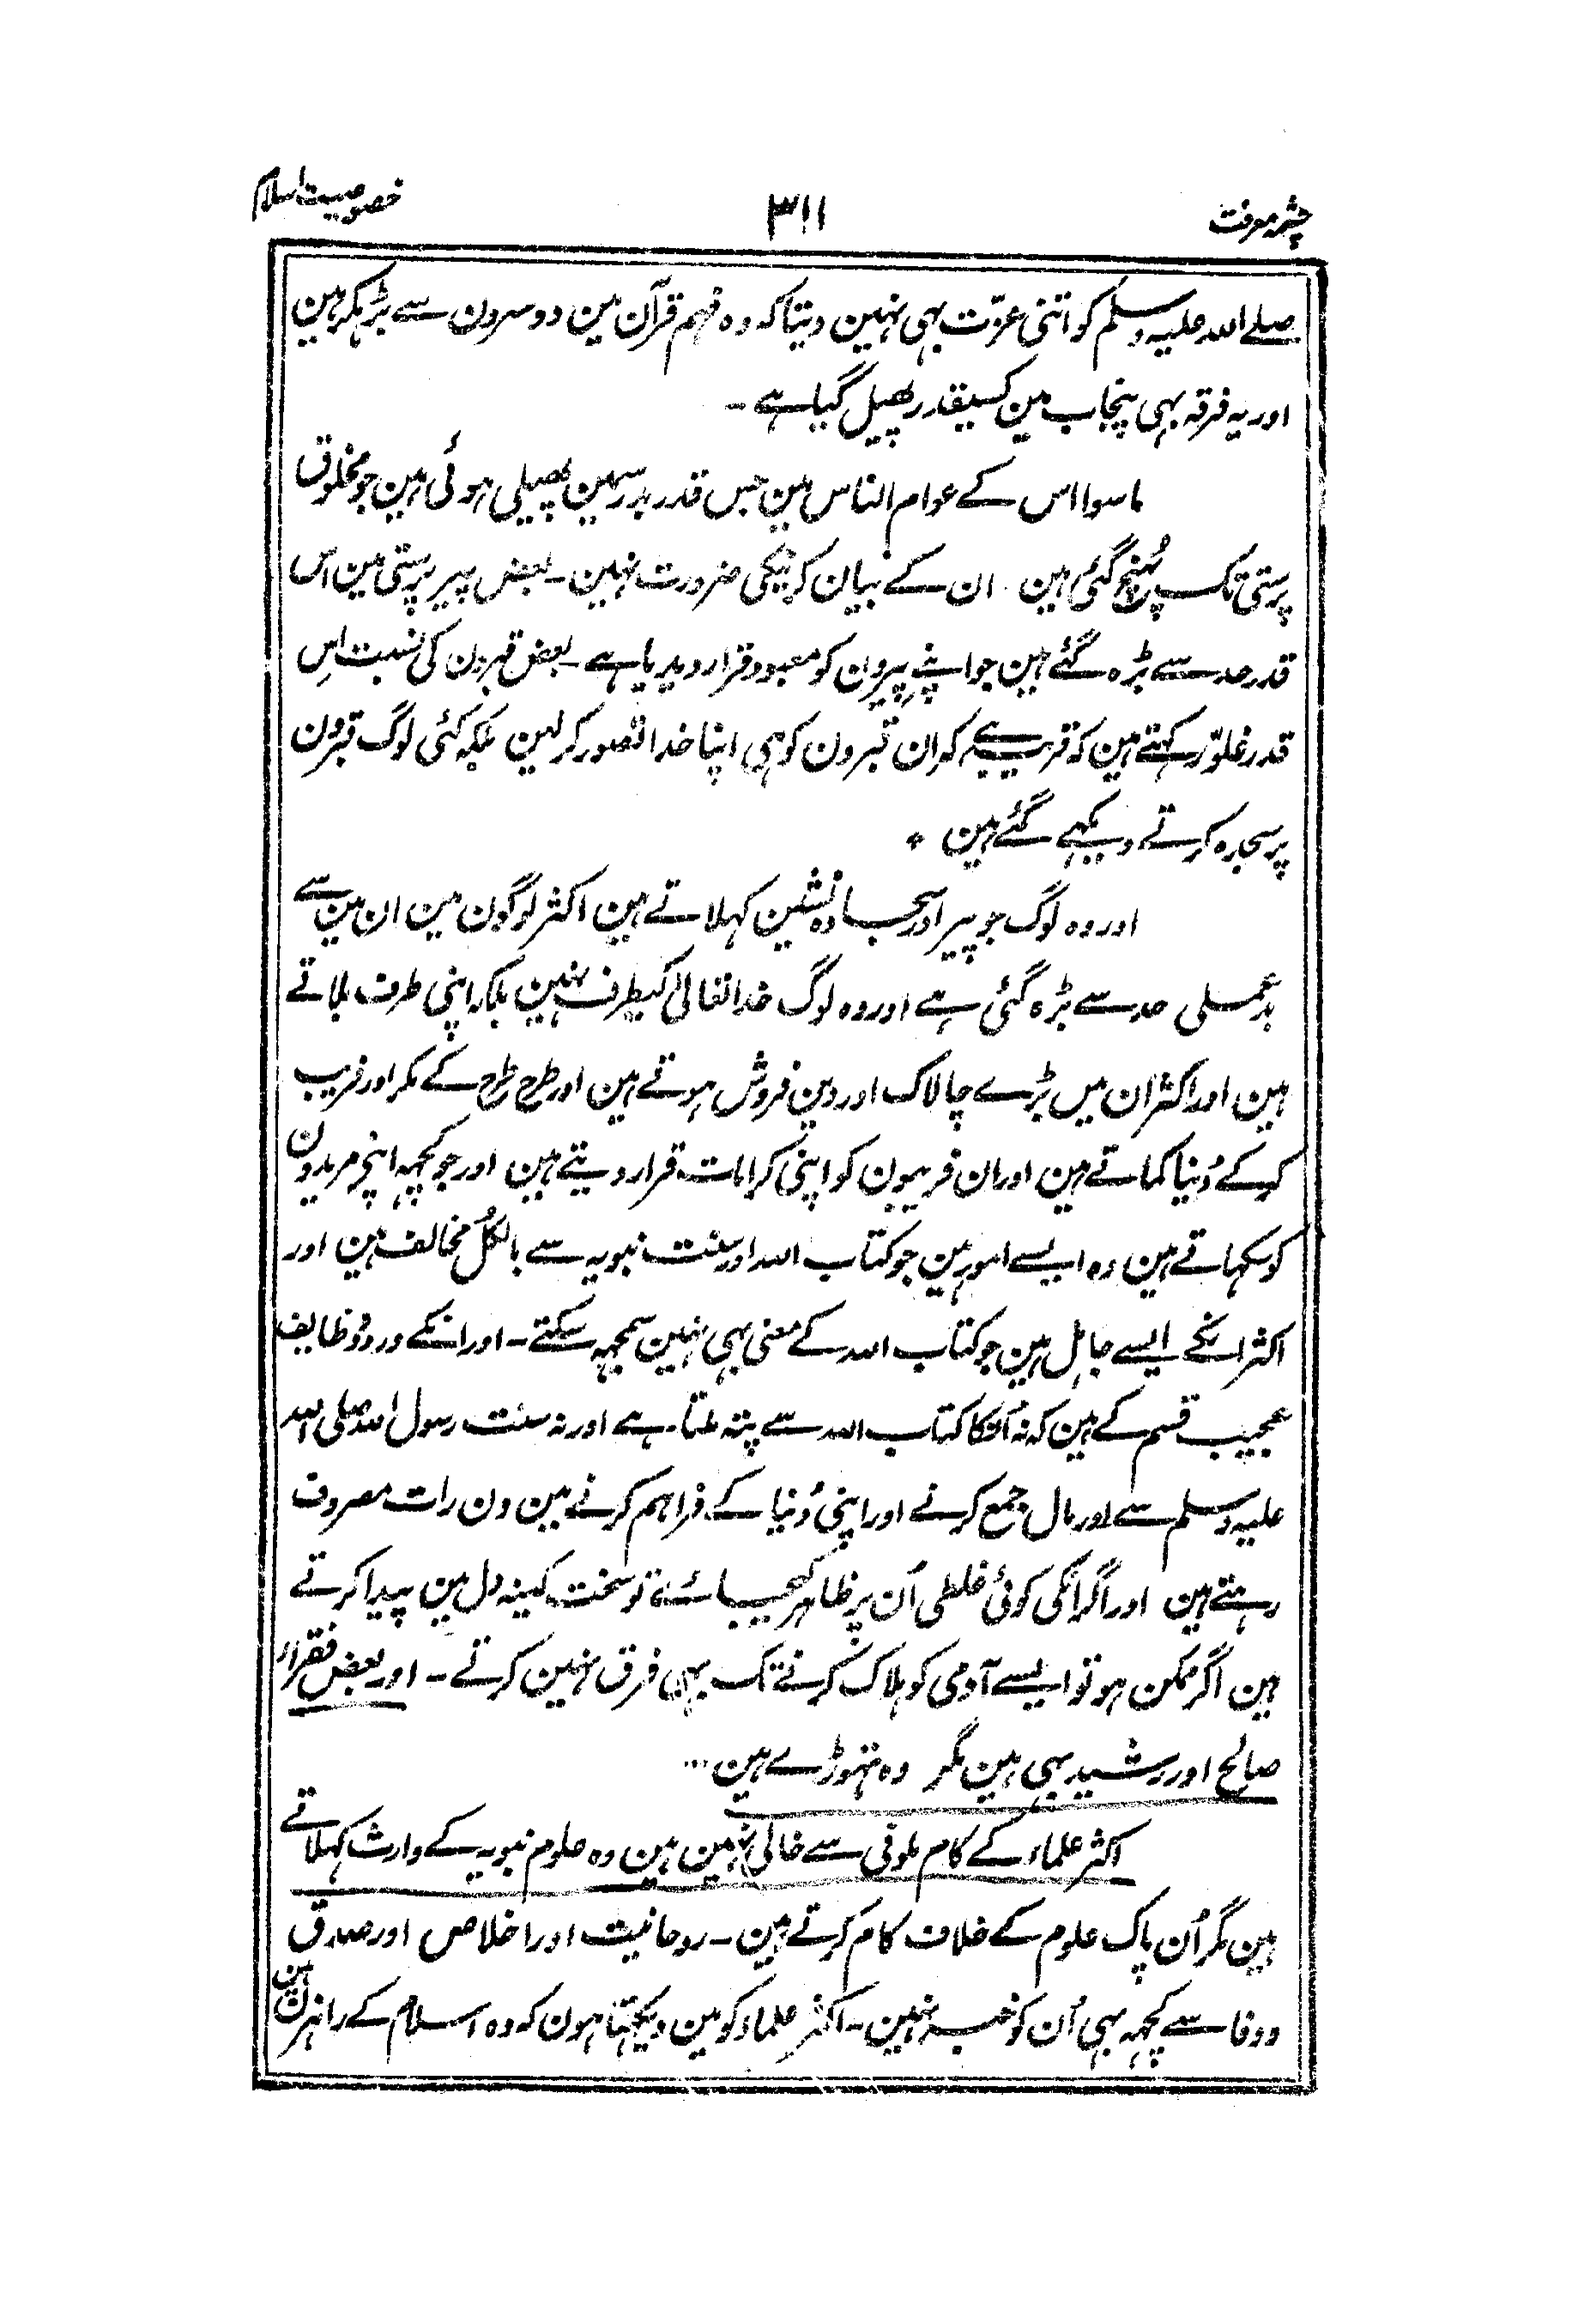 چشمہ معرفت
۳۱۱
خصوصیت اسلام
صلے اللہ علیہ وسلم کو اتنی عزّت بہی نہین دیتا کہ وہ فہم قرآن مین دوسرون سے بڑہکر ہین
اور یہ فرقہ بہی پنجاب مین کسیقدر پھیل گیا ہے -
ماسوا اس کے عوام الناس مین جس قدر بدرسمین پھیلی ہوئی ہین جو مخلوق
پرستی تک پہُنچ گئی ہین - ان کے بیان کرنیکی ضرورت نہین - بعض پیر پرستی مین اس
قدر حد سے بڑہ گئے ہین جو اپنے پیرون کو معبود قرار دیدیا ہے - بعض قبرون کی نسبت اِس
قدر غلوّ رکہتے ہین کہ قریب ہے کہ ان قبرون کو ہی اپنا خدا تصور کر لین بلکہ کئی لوگ قبرون
پر سجدہ کرتے دیکہے گئے ہین ٭
اور وہ لوگ جو پیر اور سجادہ نشین کہلاتے ہین اکثر لوگون مین ان مین سے
بدعملی حد سے بڑہ گئی ہے اور وہ لوگ خدا تعالیٰ کیطرف نہین بلکہ اپنی طرف بلاتے
ہین اور اکثر ان میں بڑے چالاک اور دین فروش ہوتے ہین اور طرح طرح کے مکر اور فریب
کر کے دُنیا کماتے ہین اور ان فریبون کو اپنی کرامات قرار دیتے ہین اور جو کچہہ اپنے مریدون
کو سکہاتے ہین وہ ایسے امور ہین جو کتاب اللہ اور سنت نبویہ سے بالکُل مخالف ہین اور
اکثر انکے ایسے جاہل ہین جو کتاب اللہ کے معنی بہی نہین سمجہہ سکتے - اور انکے ورد و وظایف
عجیب قسم کے ہین کہ نہ اُنکا کتاب اللہ سے پتہ ملتا ہے اور نہ سنت رسول اللہ صلی اللہ
علیہ وسلم سے اور مال جمع کرنے اور اپنی دُنیا کے فراہم کرنے مین دن رات مصروف
رہتے ہین اور اگر انکی کوئی غلطی اُن پر ظاہر کیجائے تو سخت کینہ دل مین پیدا کرتے
ہین اگر ممکن ہو تو ایسے آدمی کو ہلاک کرنے تک بہی فرق نہین کرتے - اور بعض فقراء
صالح اور رشید بہی ہین مگر وہ تہوڑے ہین ...
اکثر علماء کے کام ملونی سے خالی نہین ہین وہ علوم نبویہ کے وارث کہلاتے
ہین مگر اُن پاک علوم کے خلاف کام کرتے ہین - روحانیت اور اخلاص اور صدق
و وفا سے کچہہ بہی اُن کو خبر نہین - اکثر علماء کو مین دیکہتا ہون کہ وہ اسلام کے راہزن ہین